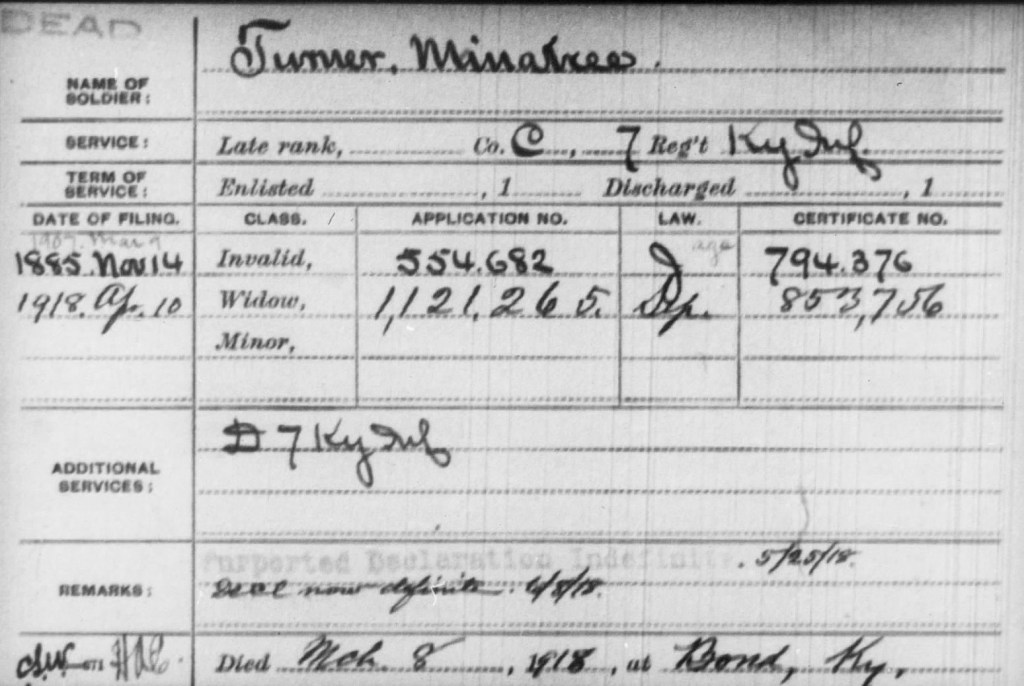 DEAD
NAME OF SOLDIER: Turner, Minatree.
SERVICE: Late rank, Co. C, 7 Reg't Ky Inf.
TERM OF SERVICE: Enlisted , 1 Discharged , 1
DATE OF FILING. CLASS. APPLICATION NO. LAW. CERTIFICATE NO.
1907. Mar 9 age
1885. Nov 14 Invalid, 554.682 J 794.376
1918. Ap. 10 Widow, 1,121,265. Dp. 853,756
Minor,
ADDITIONAL SERVICES: D 7 Ky Inf
Purported Declaration Indefinite. 5/25/18.
REMARKS: Decl now definite. 6/8/18.
Died Mch. 8, 1918, at Bond, Ky.